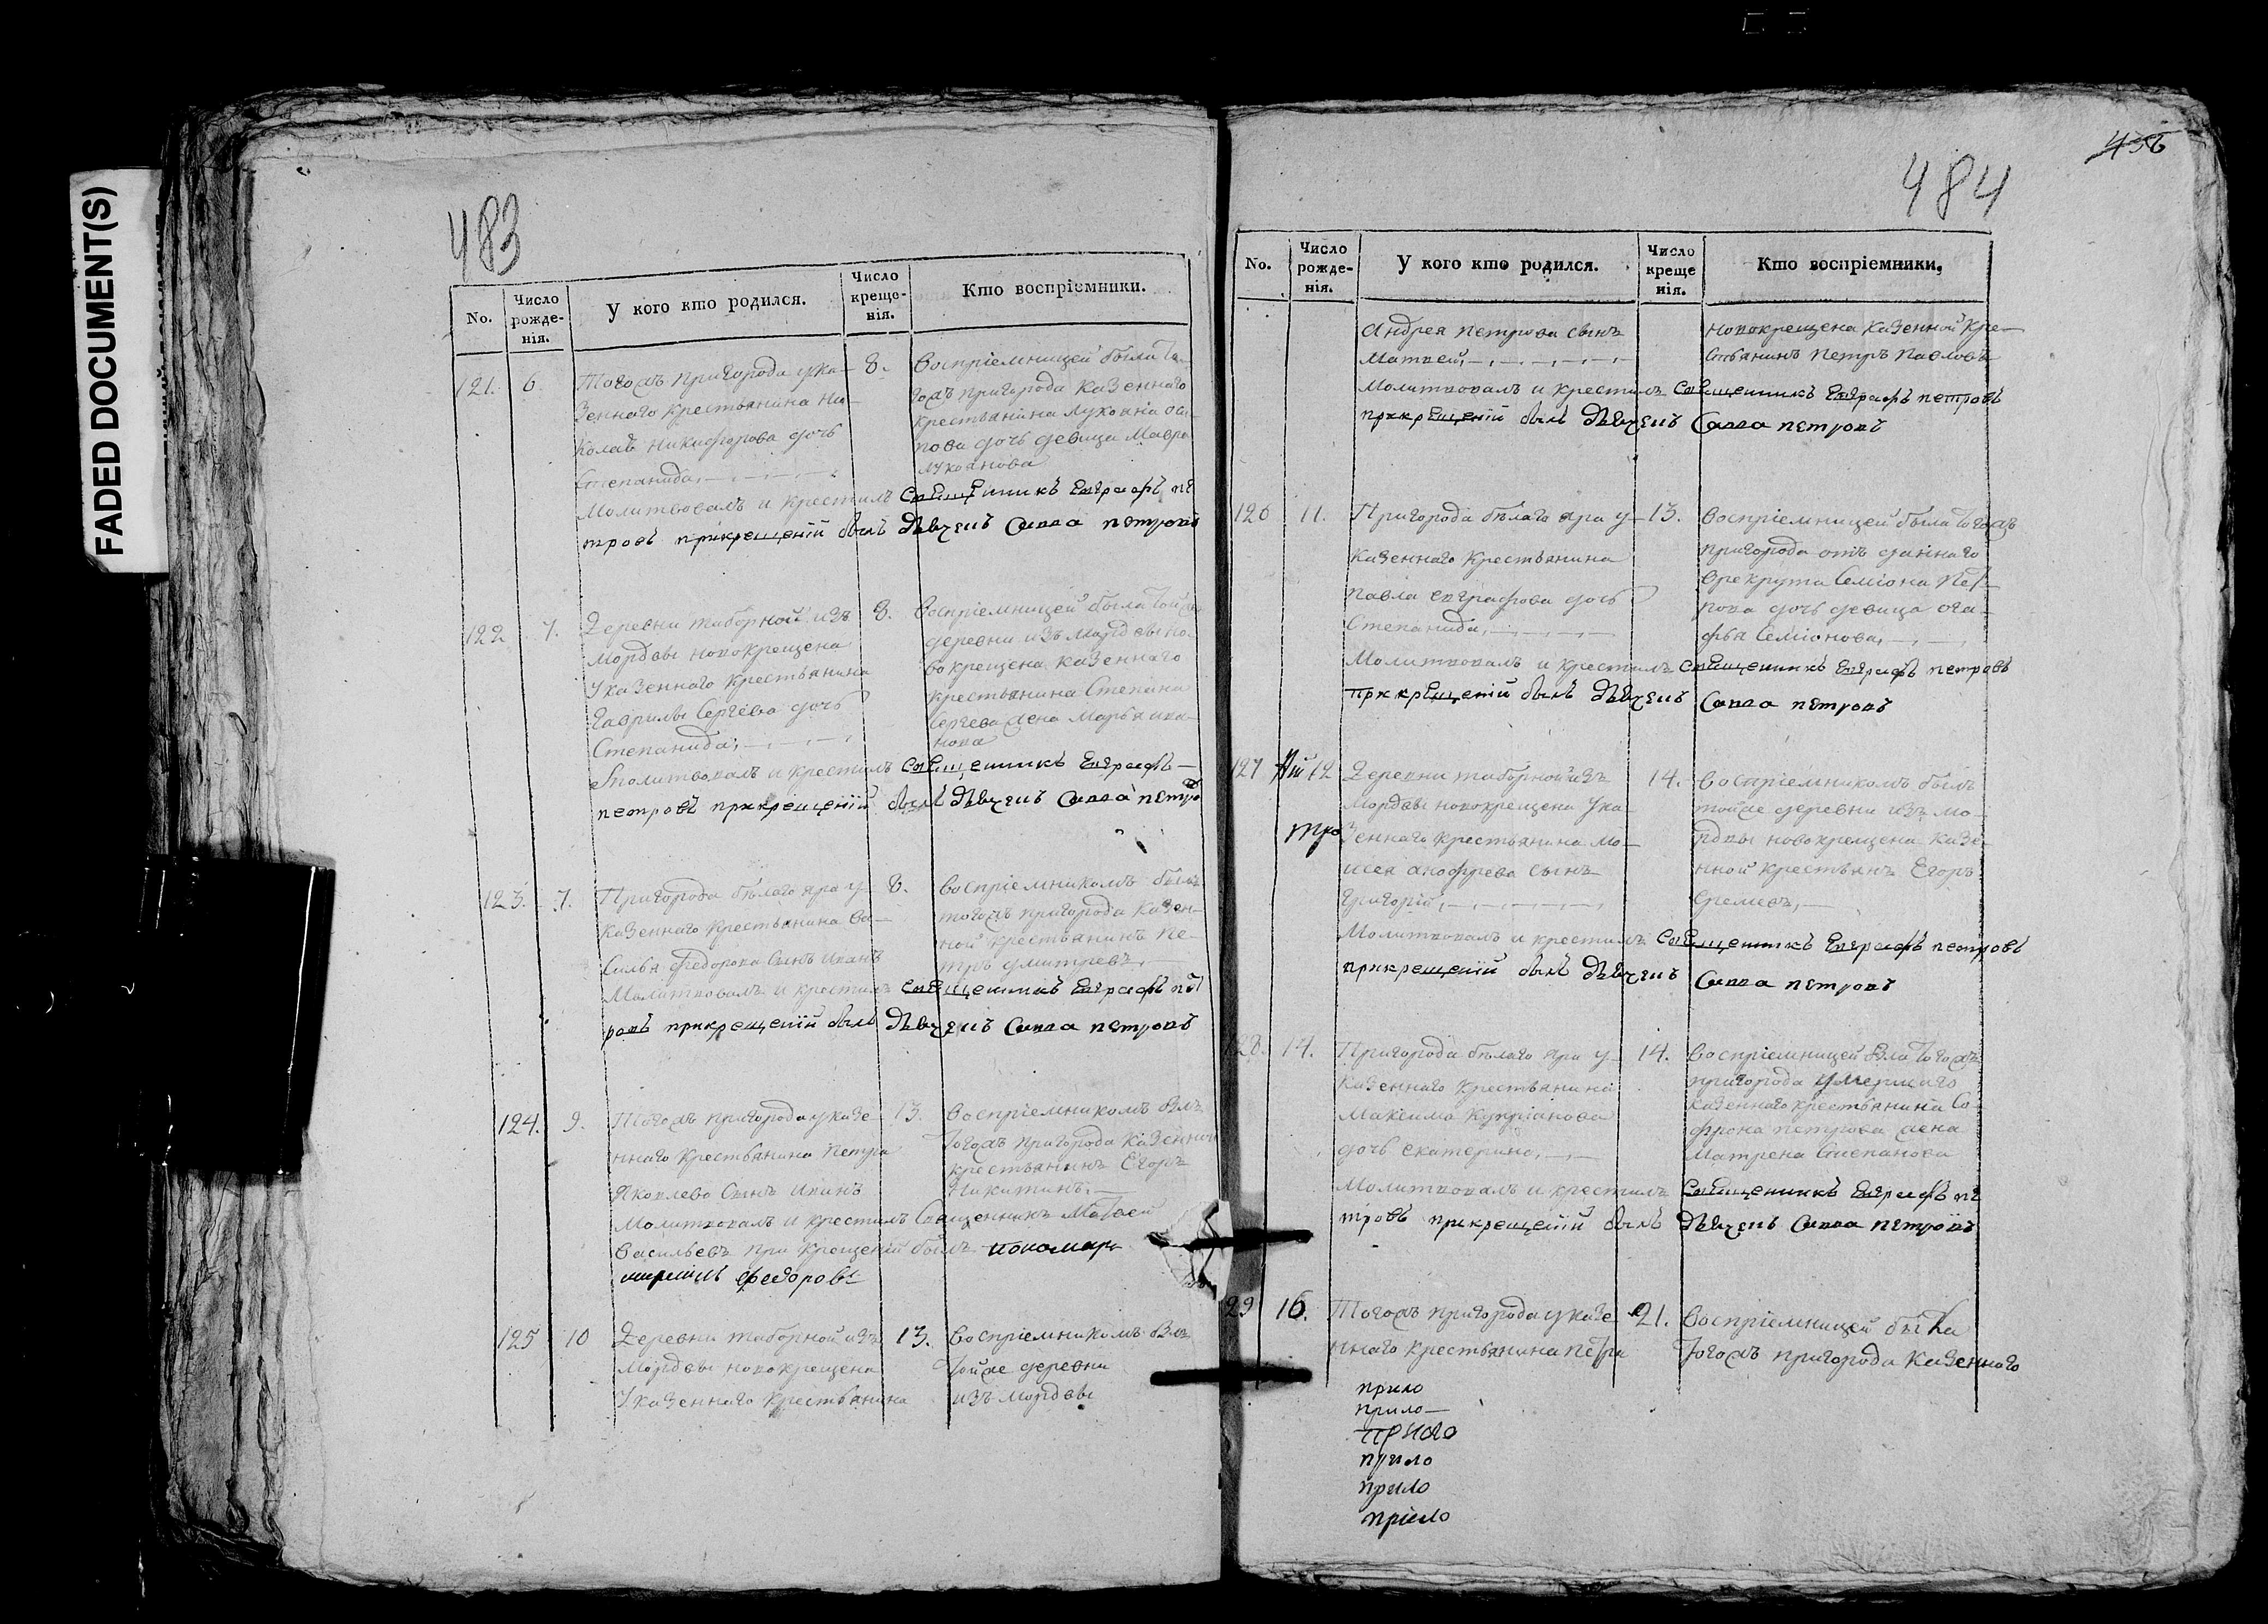 FADED DOCUMENT(S)
483
No.
Число рожде-нія.
У кого кто родился.
Число креще-нія.
Кто воспріемники.
121. 6. Тогожъ пригорода у ка-
зеннаго крестьянина Ни-
колая Никифорова дочь
Степанида,
8. Воспріемницей была то-
гожъ пригорода казеннаго
крестьянина Лукояна Оси-
пова дочь девица Мавра
Лукоянова
Молитвовалъ и крестилъ священникъ Евграфъ пе
тровъ прикрещеніи былъ дьячекъ Савва петровъ
122 7. Деревни таборной изъ
мордвы новокрещена
у казеннаго крестьянина
Гаврилы Сергеева дочь
Степанида,
8. Воспріемницей была тойже
деревни изъ мордвы но-
вокрещена казеннаго
крестьянина Степана
Сергеева жена Марья ива-
нова
Молитвовалъ и крестилъ священникъ Евграфъ
петровъ прикрещеніи былъ дьячекъ Савва петро
123. 7. Пригорода белаго яра у
казеннаго крестьянина Ва-
силья Федорова сынъ Иванъ
8. Воспріемникомъ былъ
тогожъ пригорода казен-
ной крестьянинъ Пе-
тръ дмитревъ,
Молитвовалъ и крестилъ священникъ Евграфъ пет
ровъ прикрещеніи былъ дьячекъ Савва петровъ
124. 9. Тогожъ пригорода у казе
ннаго крестьянина Петра
Яковлева Сынъ Иванъ
13. Воспріемникомъ былъ
тогожъ пригорода казенной
крестьянинъ Егоръ
Никитинъ.
Молитвовалъ и крестилъ Священникъ Матвей
Васильевъ при крещеніи былъ пономарь
федоровъ
125 10 Деревни таборной изъ
мордвы новокрещена
у казеннаго крестьянина
13. Воспріемникомъ былъ
тойже деревни
изъ мордвы
484
No.
Число рожде-нія.
У кого кто родился.
Число креще нія.
Кто воспріемники,
Андрея петрова сынъ
Матвей,
новокрещена казенной кре-
стьянинъ Петръ Павловъ
Молитвовалъ и крестилъ священникъ Евграфъ петровъ
прикрещеніи былъ дьячекъ Савва петровъ
126 11. Пригорода белаго яра у
казеннаго крестьянина
Павла евграфова дочь
Степанида,
13. Воспріемницей была тогожъ
пригорода отъ даннаго
врекруты Семіона Пет-
рова дочь девица ога-
фья Семіонова,
Молитвовалъ и крестилъ священникъ Евграфъ петровъ
прикрещеніи былъ дьячекъ Савва петровъ
127 12 Деревни таборной изъ
мордвы новокрещена у ка-
зеннаго крестьянина Мо-
исея анофрева сынъ
Григорій,
14. Воспріемникомъ былъ
тойже деревни изъ мо-
рдвы новокрещена казе-
нной крестьянъ Егоръ
Еремевъ,
Молитвовалъ и крестилъ священникъ Евграфъ петровъ
прикрещеніи былъ дьячекъ Савва петровъ
128. 14. Пригорода белаго яра у
казеннаго крестьянина
Максима Купріянова
дочь екатерина,
14. Воспріемницей была тогожъ
пригорода умершаго
казеннаго крестьянина Со-
фрона петрова жена
Матрена Степанова
Молитвовалъ и крестилъ священникъ Евграфъ пе
тровъ прикрещеніи былъ дьячекъ Савва петровъ
29 16. Тогожъ пригорода у казе
ннаго крестьянина Петра
21. Воспріемницей была
тогожъ пригорода казеннаго
прило
прило
прило
прило
прило
пріело